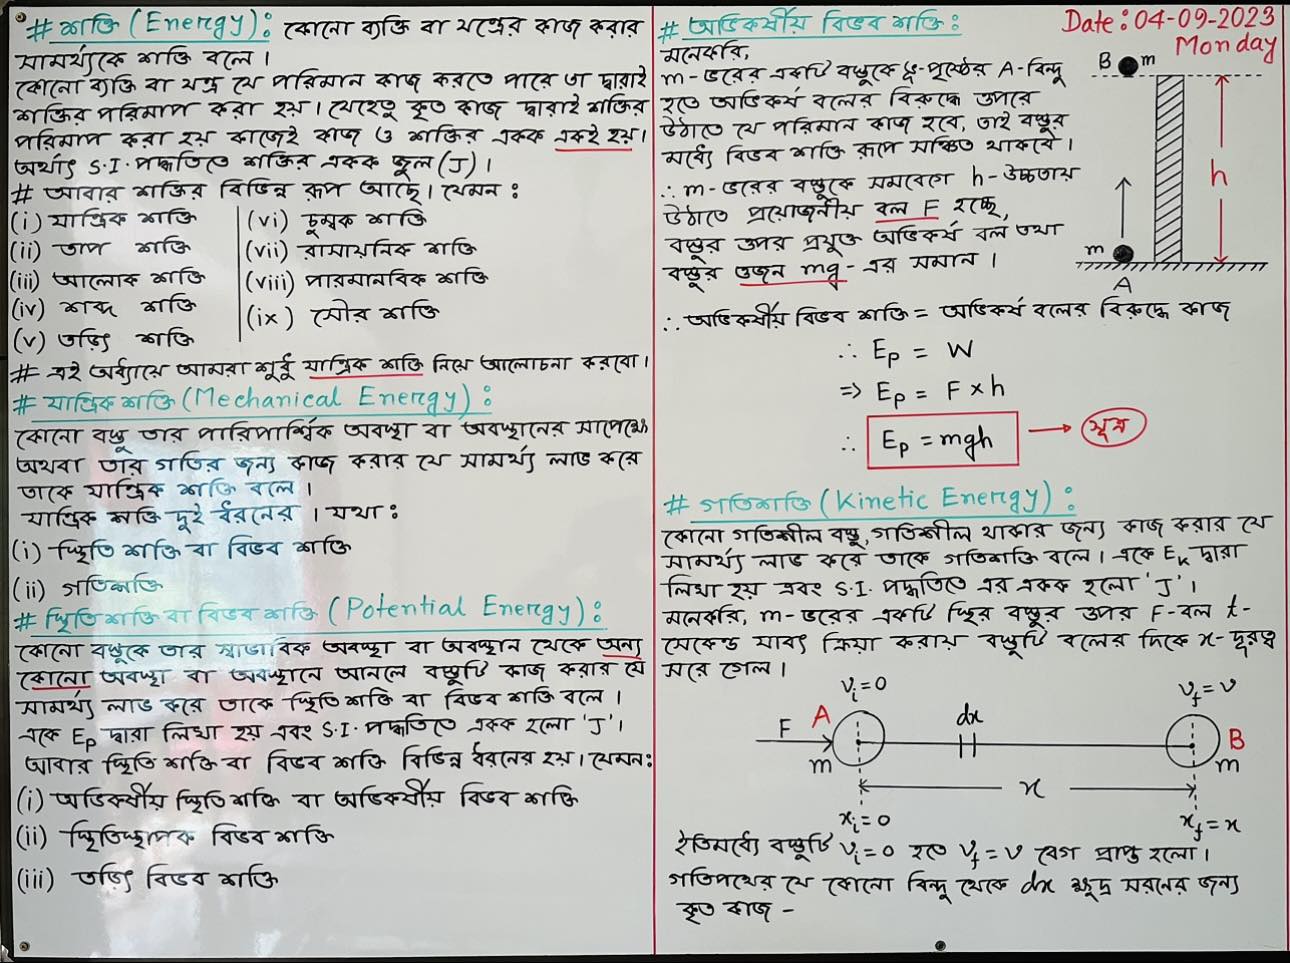 # শক্তি (Energy): কোনো ব্যক্তি বা যন্ত্রের কাজ করার
সামর্থ্যকে শক্তি বলে।
কোনো ব্যক্তি বা যন্ত্র যে পরিমান কাজ করতে পারে তা দ্বারাই
শক্তির পরিমাপ করা হয়। যেহেতু কৃত কাজ দ্বারাই শক্তির
পরিমাপ করা হয় কাজেই কাজ ও শক্তির একক একই হয়।
অর্থাৎ S.I. পদ্ধতিতে শক্তির একক জুল (J)।
# আবার শক্তির বিভিন্ন রূপ আছে। যেমন:
(i) যান্ত্রিক শক্তি
(ii) তাপ শক্তি
(iii) আলোক শক্তি
(iv) শব্দ শক্তি
(v) তড়িৎ শক্তি
(vi) চুম্বক শক্তি
(vii) রাসায়নিক শক্তি
(viii) পারমানবিক শক্তি
(ix) সৌর শক্তি
# এই অধ্যায়ে আমরা শুধু যান্ত্রিক শক্তি নিয়ে আলোচনা করবো।
# যান্ত্রিক শক্তি (Mechanical Energy):
কোনো বস্তু তার পারিপার্শ্বিক অবস্থা বা অবস্থানের সাপেক্ষে
অথবা তার গতির জন্য কাজ করার যে সামর্থ্য লাভ করে
তাকে যান্ত্রিক শক্তি বলে।
যান্ত্রিক শক্তি দুই ধরনের। যথা:
(i) স্থিতি শক্তি বা বিভব শক্তি
(ii) গতিশক্তি
# স্থিতি শক্তি বা বিভব শক্তি (Potential Energy):
কোনো বস্তুকে তার স্বাভাবিক অবস্থা বা অবস্থান থেকে অন্য
কোনো অবস্থা বা অবস্থানে আনলে বস্তুটি কাজ করার যে
সামর্থ্য লাভ করে তাকে স্থিতি শক্তি বা বিভব শক্তি বলে।
একে Ep দ্বারা লিখা হয় এবং S.I. পদ্ধতিতে একক হলো 'J'।
আবার স্থিতি শক্তি বা বিভব শক্তি বিভিন্ন ধরনের হয়। যেমন:
(i) অভিকর্ষীয় স্থিতি শক্তি বা অভিকর্ষীয় বিভব শক্তি
(ii) স্থিতিস্থাপক বিভব শক্তি
(iii) তড়িৎ বিভব শক্তি
Date: 04-09-2023
Monday
# অভিকর্ষীয় বিভব শক্তি:
মনেকরি,
m-ভরের একটি বস্তুকে ভূ-পৃষ্ঠের A-বিন্দু
হতে অভিকর্ষ বলের বিরুদ্ধে উপরে
উঠাতে যে পরিমান কাজ হবে, তাই বস্তুর
মধ্যে বিভব শক্তি রূপে সঞ্চিত থাকবে।
∴ m-ভরের বস্তুকে সমবেগে h-উচ্চতায়
উঠাতে প্রয়োজনীয় বল F হচ্ছে,
বস্তুর উপর প্রযুক্ত অভিকর্ষ বল তথা
বস্তুর ওজন mg-এর সমান।
B m
h
m
A
∴ অভিকর্ষীয় বিভব শক্তি = অভিকর্ষ বলের বিরুদ্ধে কাজ
∴ Ep = W
⇒ Ep = F × h
∴ Ep = mgh → সূত্র
# গতিশক্তি (Kinetic Energy):
কোনো গতিশীল বস্তু, গতিশীল থাকার জন্য কাজ করার যে
সামর্থ্য লাভ করে তাকে গতিশক্তি বলে। একে Ek দ্বারা
লিখা হয় এবং S.I. পদ্ধতিতে এর একক হলো 'J'।
মনেকরি, m-ভরের একটি স্থির বস্তুর উপর F-বল t-
সেকেন্ড যাবৎ ক্রিয়া করায় বস্তুটি বলের দিকে x-দূরত্ব
সরে গেল।
vi=0
vf=v
F A dx B
m m
x
xi=0
xf=x
ইতিমধ্যে বস্তুটি vi=0 হতে vf=v বেগ প্রাপ্ত হলো।
গতিপথের যে কোনো বিন্দু থেকে dx ক্ষুদ্র সরনের জন্য
কৃত কাজ -